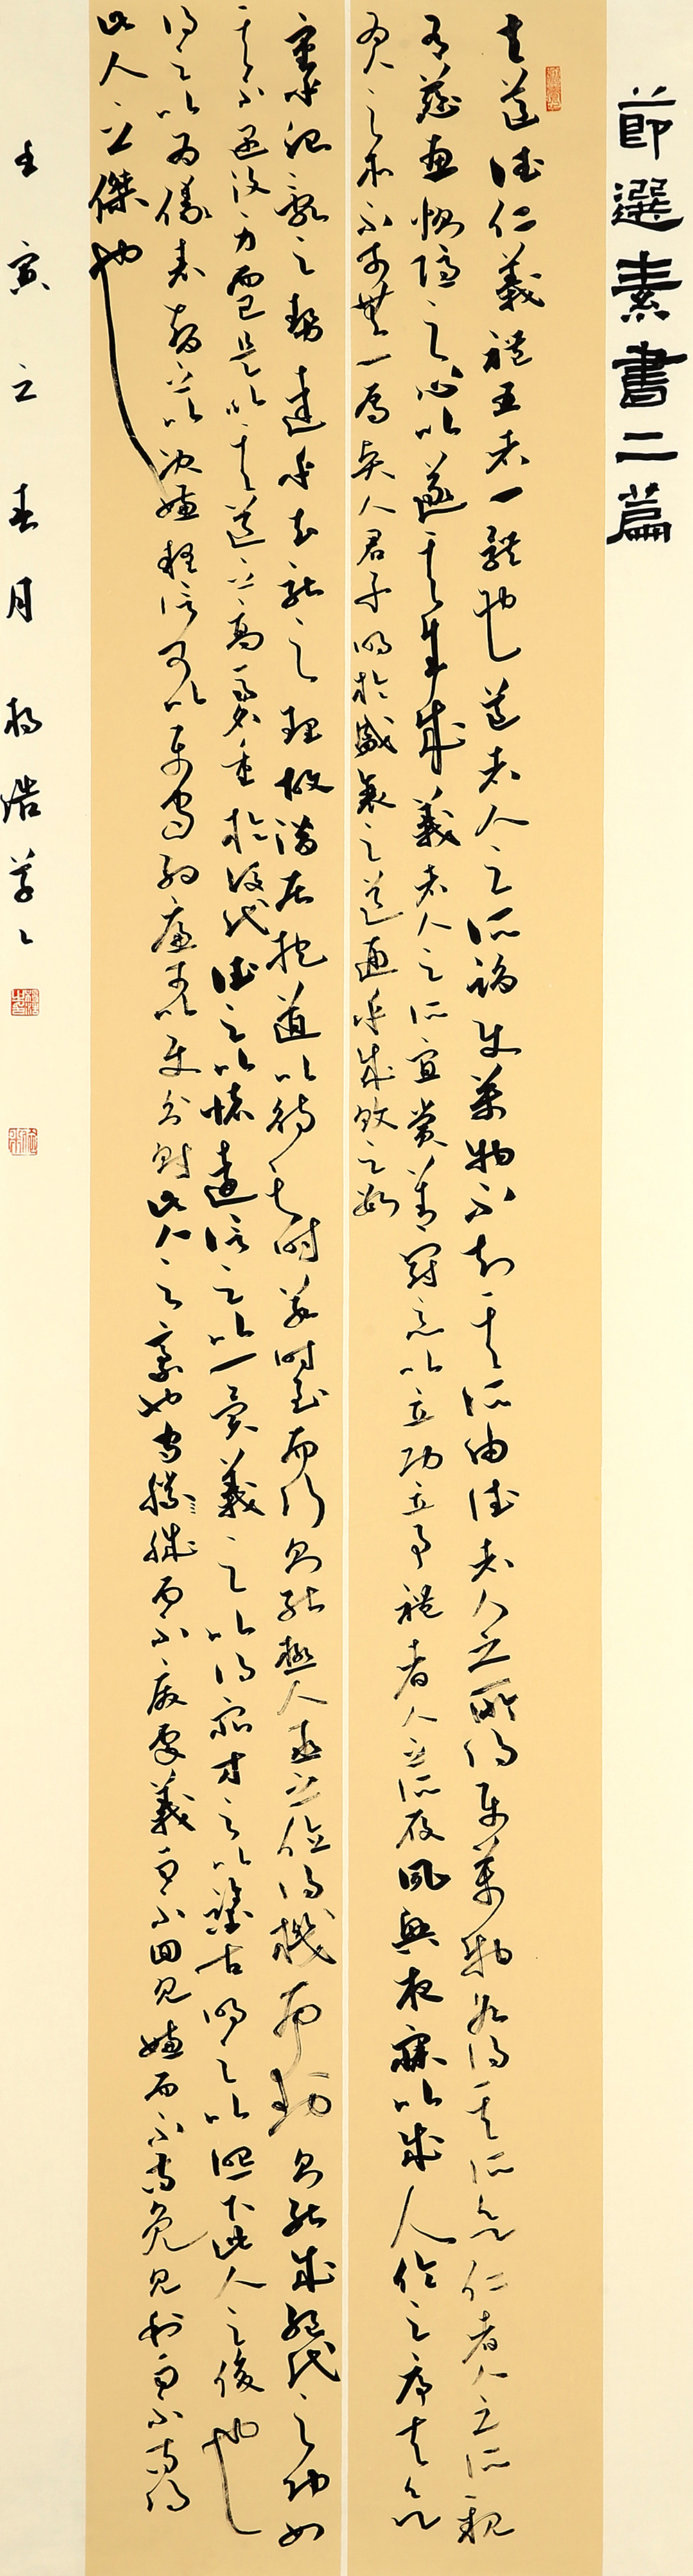 節選素書二篇
夫道德仁義禮五者一體也道者人之所蹈使萬物不知其所由德者人之所得使萬物各得其所欲仁者人之所親
有慈惠惻隱之心以遂其生成義者人之所宜賞善罰惡以立功立事禮者人之所履夙興夜寐以成人倫之序夫欲
為人之本不可無一焉賢人君子明於盛衰之道通乎成敗之數
審乎治亂之勢達乎去就之理故潛居抱道以待其時若時至而行則能極人臣之位得機而動則能成絕代之功如
其不遇沒身而已是以其道足高而名重於後代德足以懷遠信足以一異義足以得眾才足以鑒古明足以照下此人之俊也
行足以為儀表智足以決嫌疑信可以使守約廉可以使分財此人之豪也守職而不廢處義而不回見嫌而不苟免見利而不苟得
此人之傑也
壬寅之春月楊浩草之